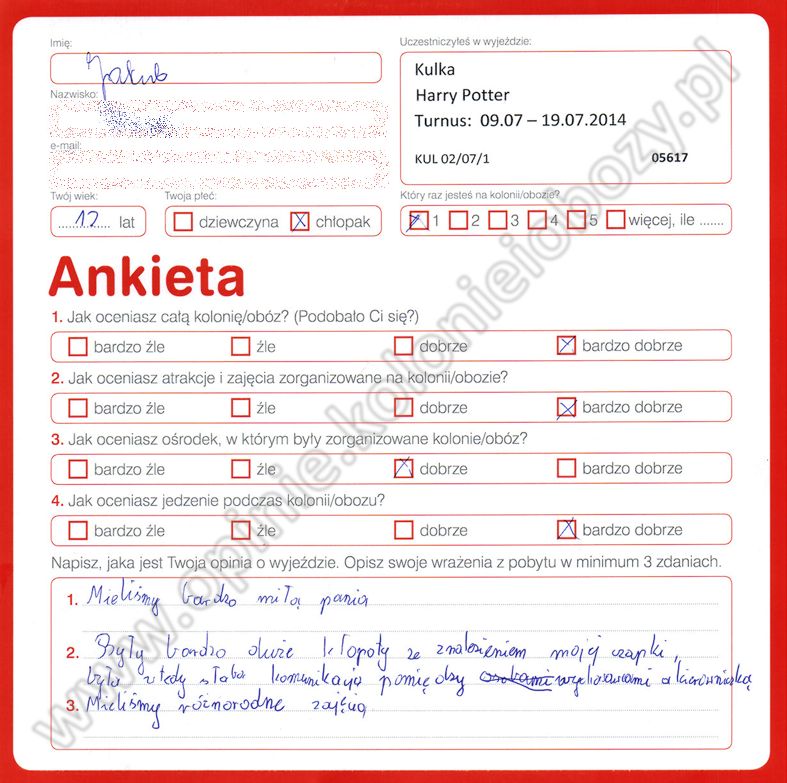 Imię:
Jakub
Uczestniczyłeś w wyjeździe:
Kulka
Harry Potter
Turnus: 09.07 – 19.07.2014
KUL 02/07/1 05617
Nazwisko:
e-mail:
Twój wiek:
12 lat
Twoja płeć:
dziewczyna chłopak
Który raz jesteś na kolonii/obozie?
1 2 3 4 5 więcej, ile .......
Ankieta
1. Jak oceniasz całą kolonię/obóz? (Podobało Ci się?)
bardzo źle źle dobrze bardzo dobrze
2. Jak oceniasz atrakcje i zajęcia zorganizowane na kolonii/obozie?
bardzo źle źle dobrze bardzo dobrze
3. Jak oceniasz ośrodek, w którym były zorganizowane kolonie/obóz?
bardzo źle źle dobrze bardzo dobrze
4. Jak oceniasz jedzenie podczas kolonii/obozu?
bardzo źle źle dobrze bardzo dobrze
Napisz, jaka jest Twoja opinia o wyjeździe. Opisz swoje wrażenia z pobytu w minimum 3 zdaniach.
1. Mieliśmy bardzo miłą panią
2. Były bardzo duże kłopoty ze znalezieniem mojej czapki,
była wtedy słaba komunikacja pomiędzy wychowawcami a kierowniczką
3. Mieliśmy różnorodne zajęcia
www.opinie.kolonieiobozy.pl